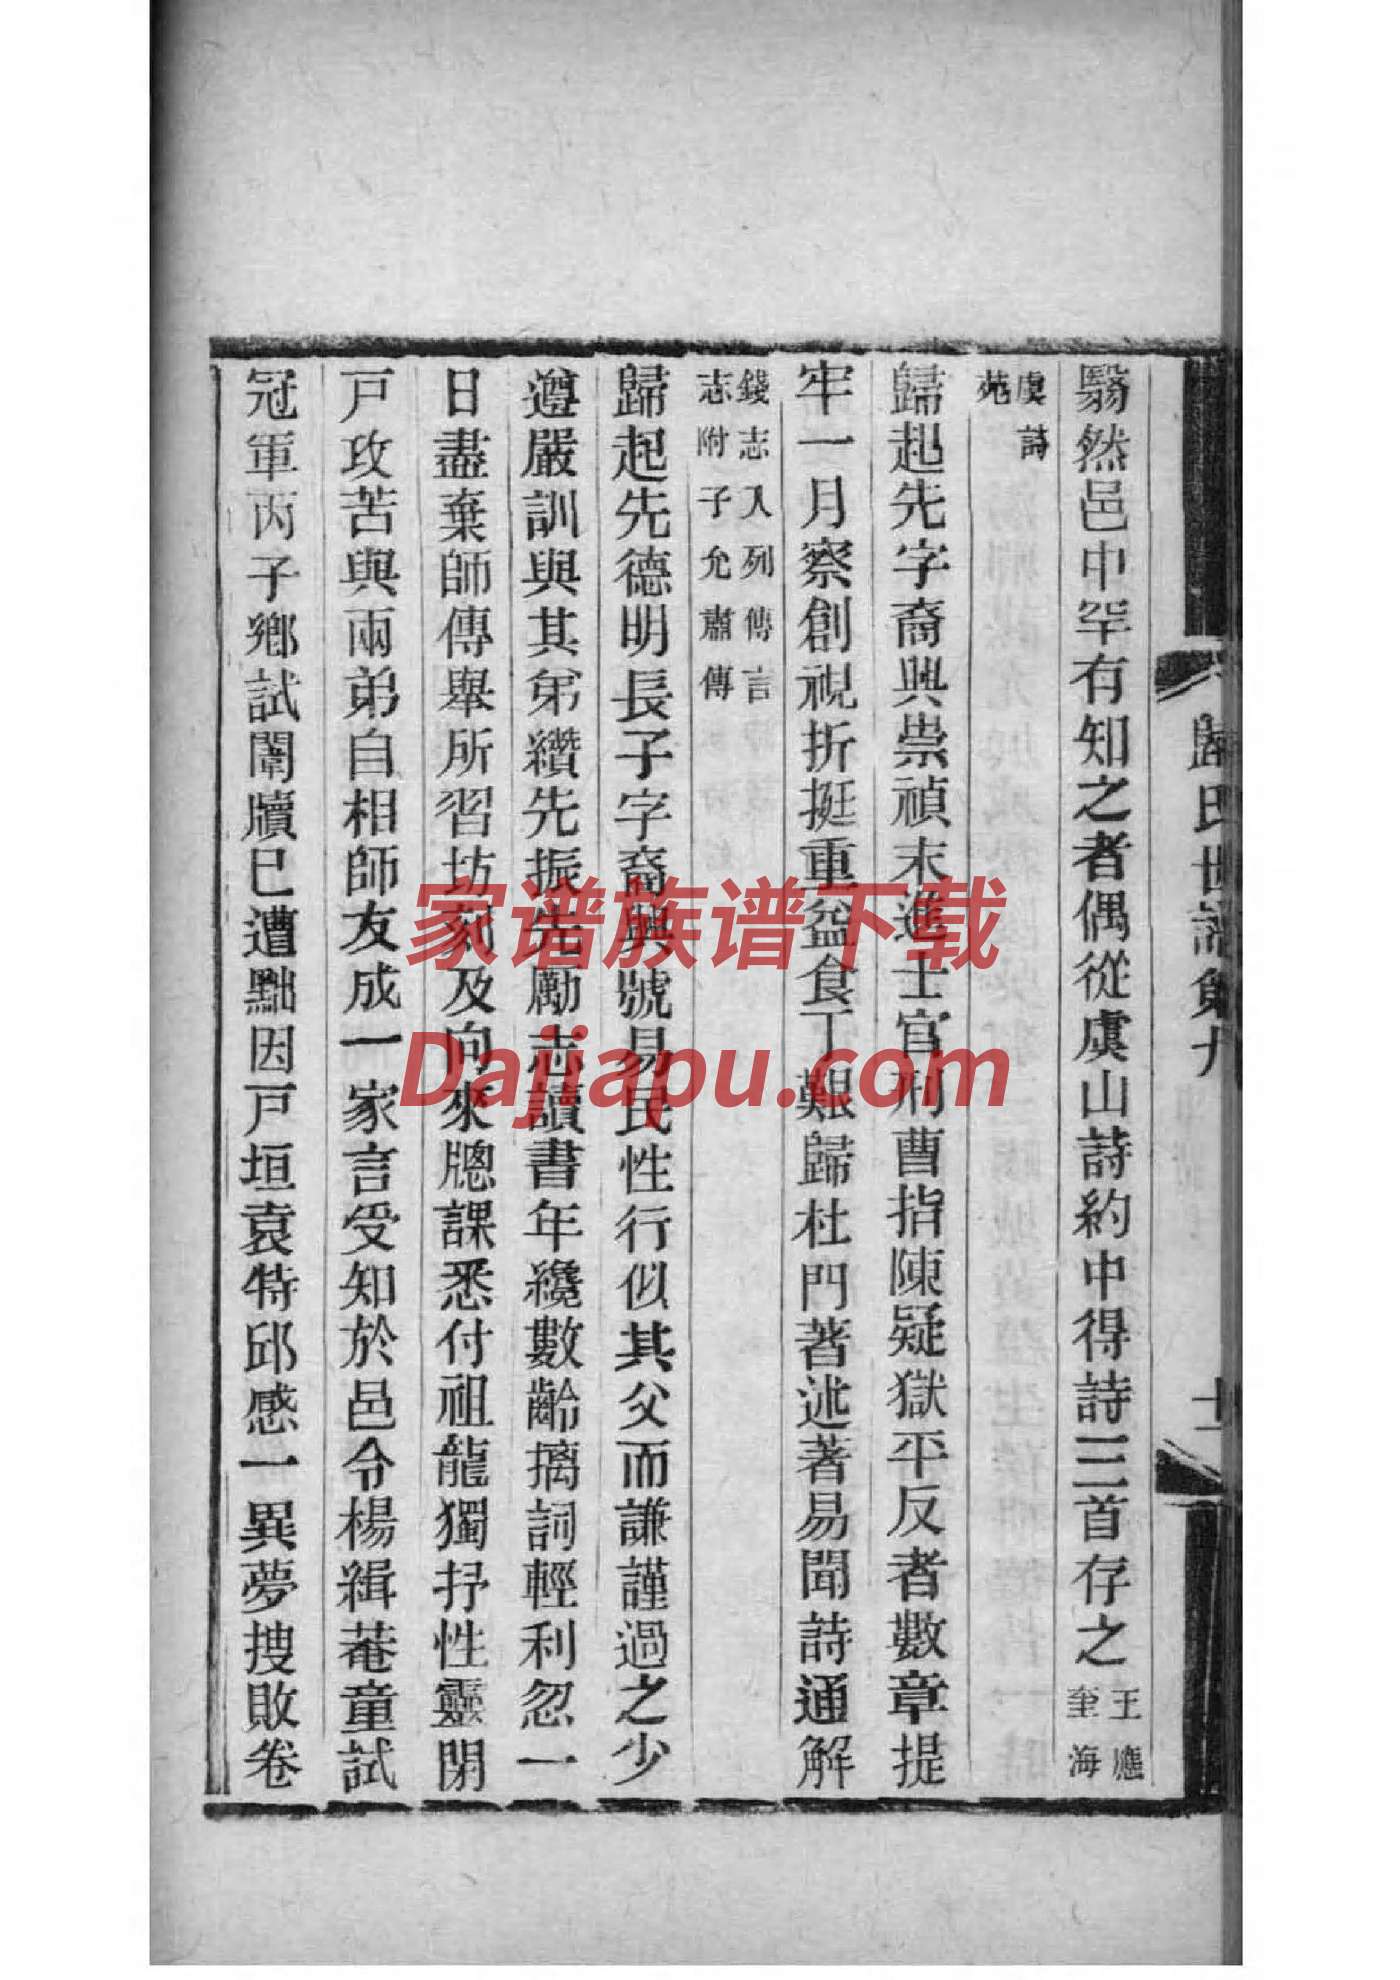 翳然邑中罕有知之者偶從虞山詩約中得詩三首存之王應奎海
虞詩苑
歸起先字裔興崇禎末進士官刑曹指陳疑獄平反者數章提
牢一月察創視折挺重盆食丁艱歸杜門著述著易聞詩通解
錢志入列傳言
志附子允肅傳
歸起先德明長子字裔興號易民性行似其父而謙謹過之少
遵嚴訓與其弟纘先振先勵志讀書年纔數齡摛詞輕利忽一
日盡棄師傳舉所習坊刻及向來牕課悉付祖龍獨抒性靈閉
戸攻苦與兩弟自相師友成一家言受知於邑令楊緝菴童試
冠軍丙子鄉試闈牘已遭黜因戸垣袁特邱感一異夢搜敗卷
歸氏世譜第九
十
家谱族谱下载
Dajiapu.com